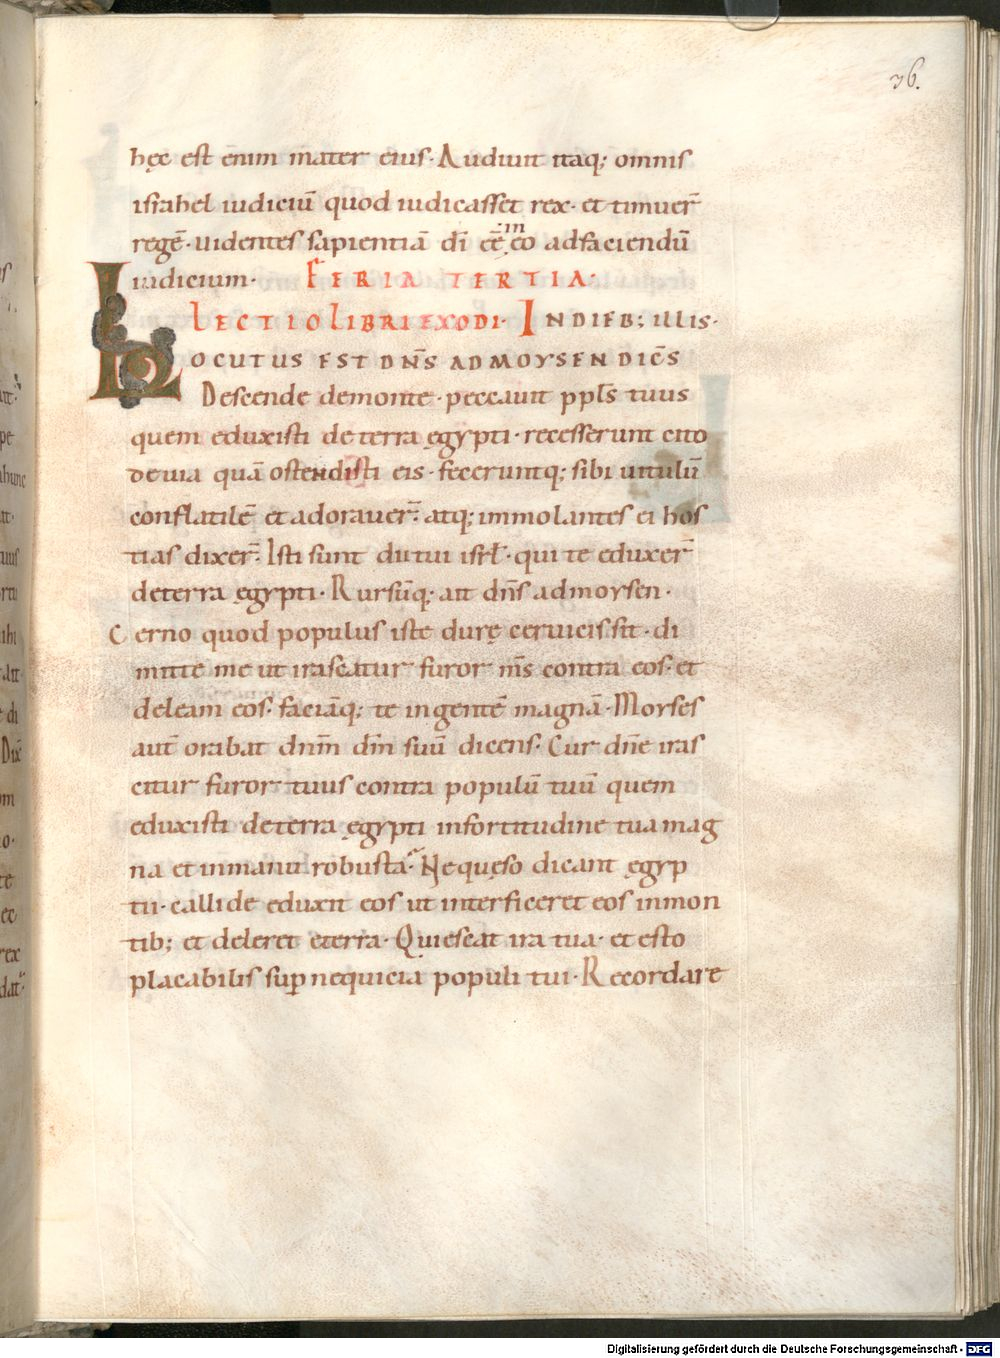 76.
hęc est enim mater eius· Audiuit itaq; omnis
israhel iudiciū quod iudicasset rex· et timuer̄
regē· uidentes sapientiā dī eē in eo ad faciendū
iudicium· FERIA TERTIA·
LECTIO LIBRI EXODI· IN DIEB; ILLIS·
LOCUTUS EST DN̄S AD MOYSEN DICĒS
Descende de monte· peccauit ppl̄s tuus
quem eduxisti de terra ęgypti· recesserunt cito
de uia quā ostendisti eis· feceruntq; sibi uitulū
conflatilē et adorauer̄· atq; immolantes ei hos
tias dixer̄· Isti sunt dii tui isrl̄· qui te eduxer̄
de terra ęgypti· Rursūq; ait dn̄s ad moysen·
Cerno quod populus iste durę ceruicis sit· di
mitte me ut irascatur furor m̄s contra eos· et
deleam eos· faciāq; te in gentē magnā· Moyses
aut̄ orabat dnm̄ dm̄ suū dicens· Cur dn̄e iras
citur furor tuus contra populū tuū quem
eduxisti de terra ęgypti in fortitudine tua mag
na et in manu robusta· Ne quęso dicant ęgyp
tii· callide eduxit eos ut interficeret eos in mon
tib; et deleret e terra· Quiescat ira tua· et esto
placabilis sup̄ nequicia populi tui· Recordare
Digitalisierung gefördert durch die Deutsche Forschungsgemeinschaft - DFG